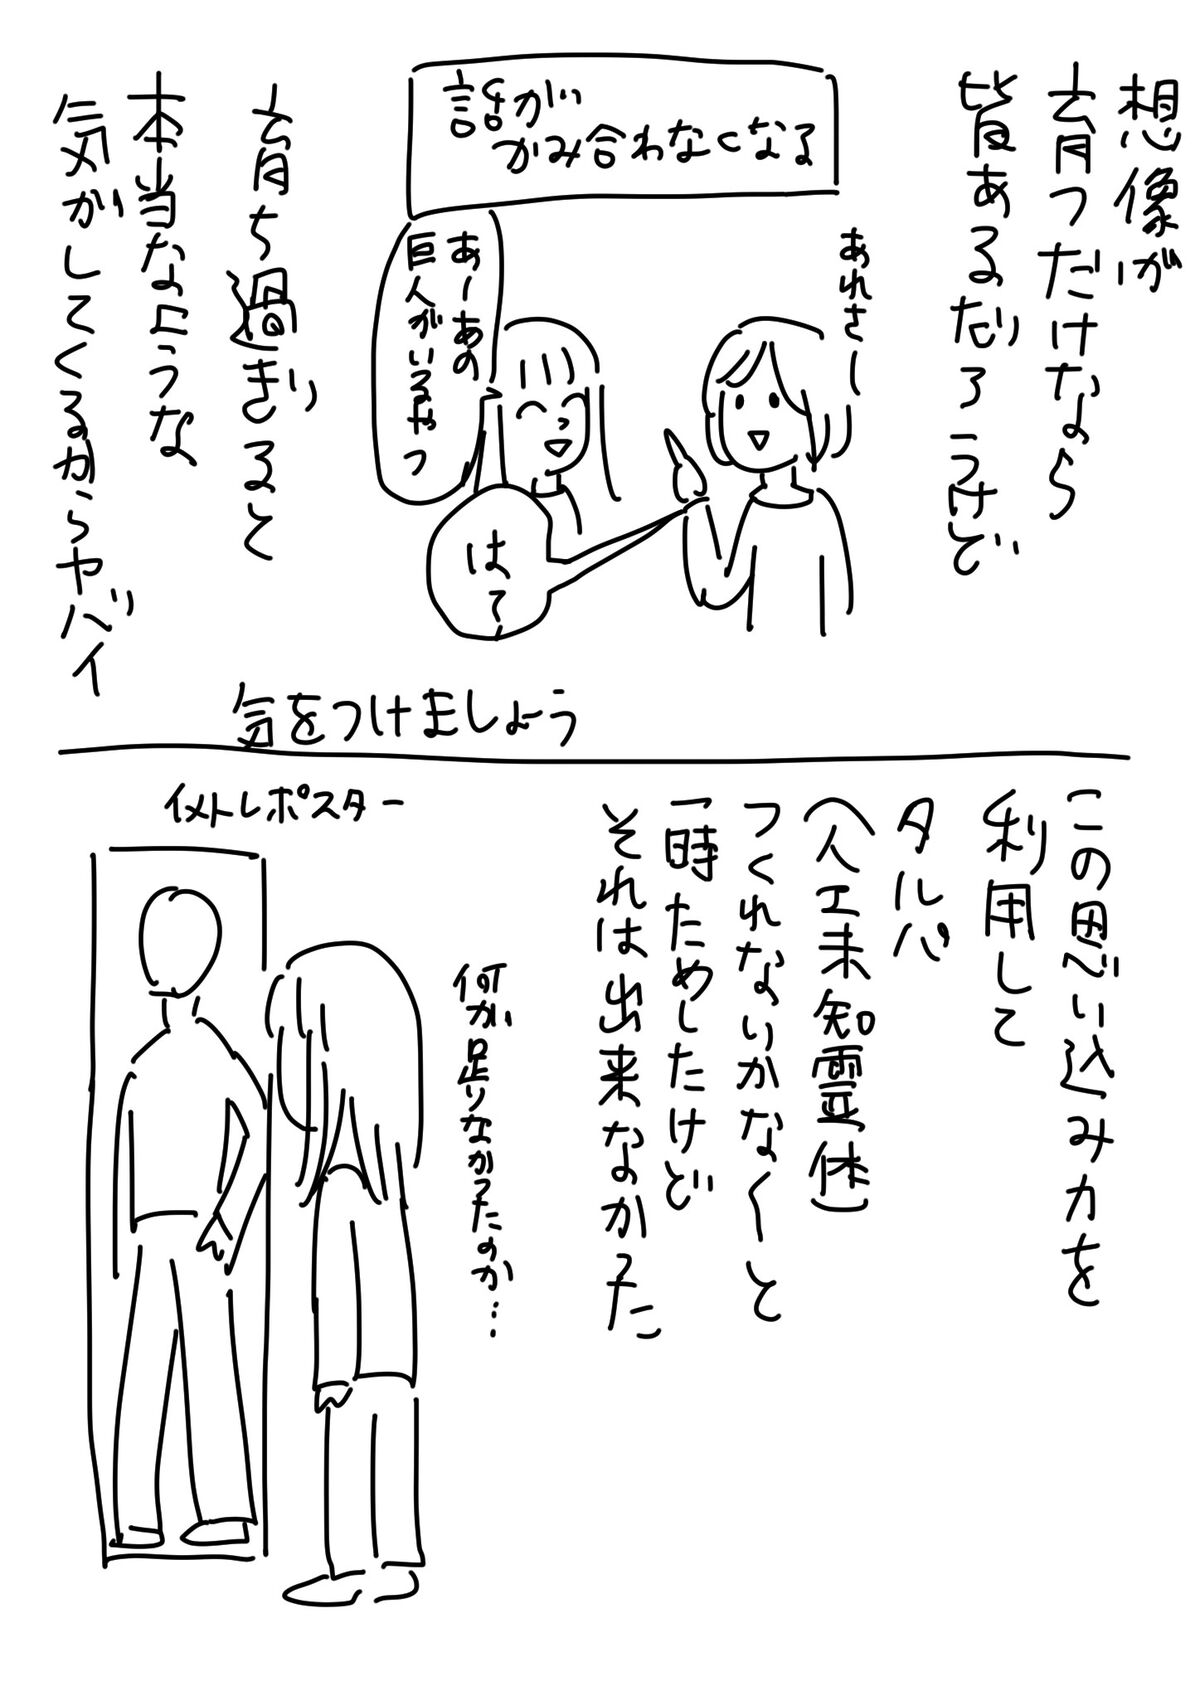 想像が
育つだけなら
皆あるだろうけど
話が
かみ合わなくなる
あれさー
あーあの
巨人がいるやつ
はて
育ち過ぎると
本当なような
気がしてくるからヤバイ
気をつけましょう
この思い込み力を
利用して
タルパ
(人工未知霊体)
つくれないかなーと
一時ためしたけど
それは出来なかった
何か足りなかったのか…
イメトレポスター